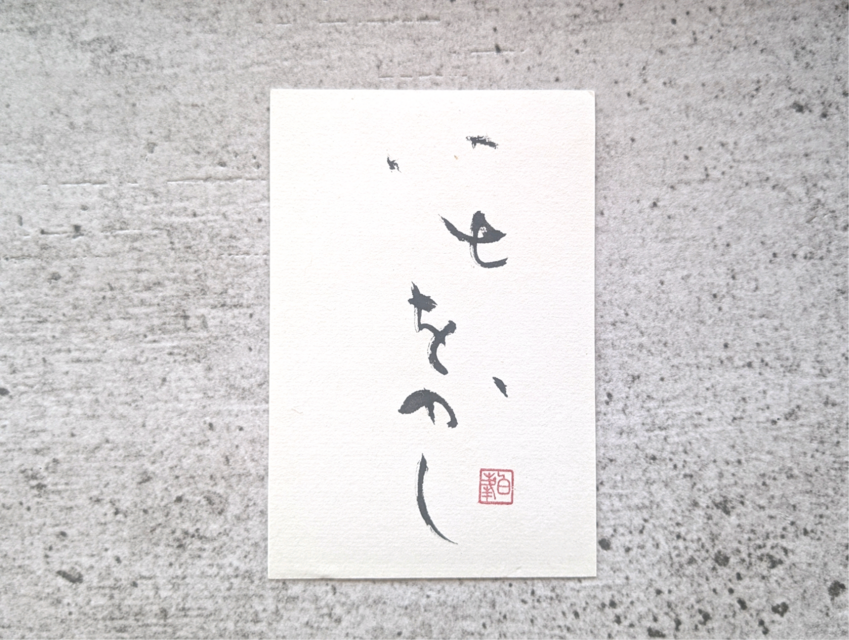 いとをかし